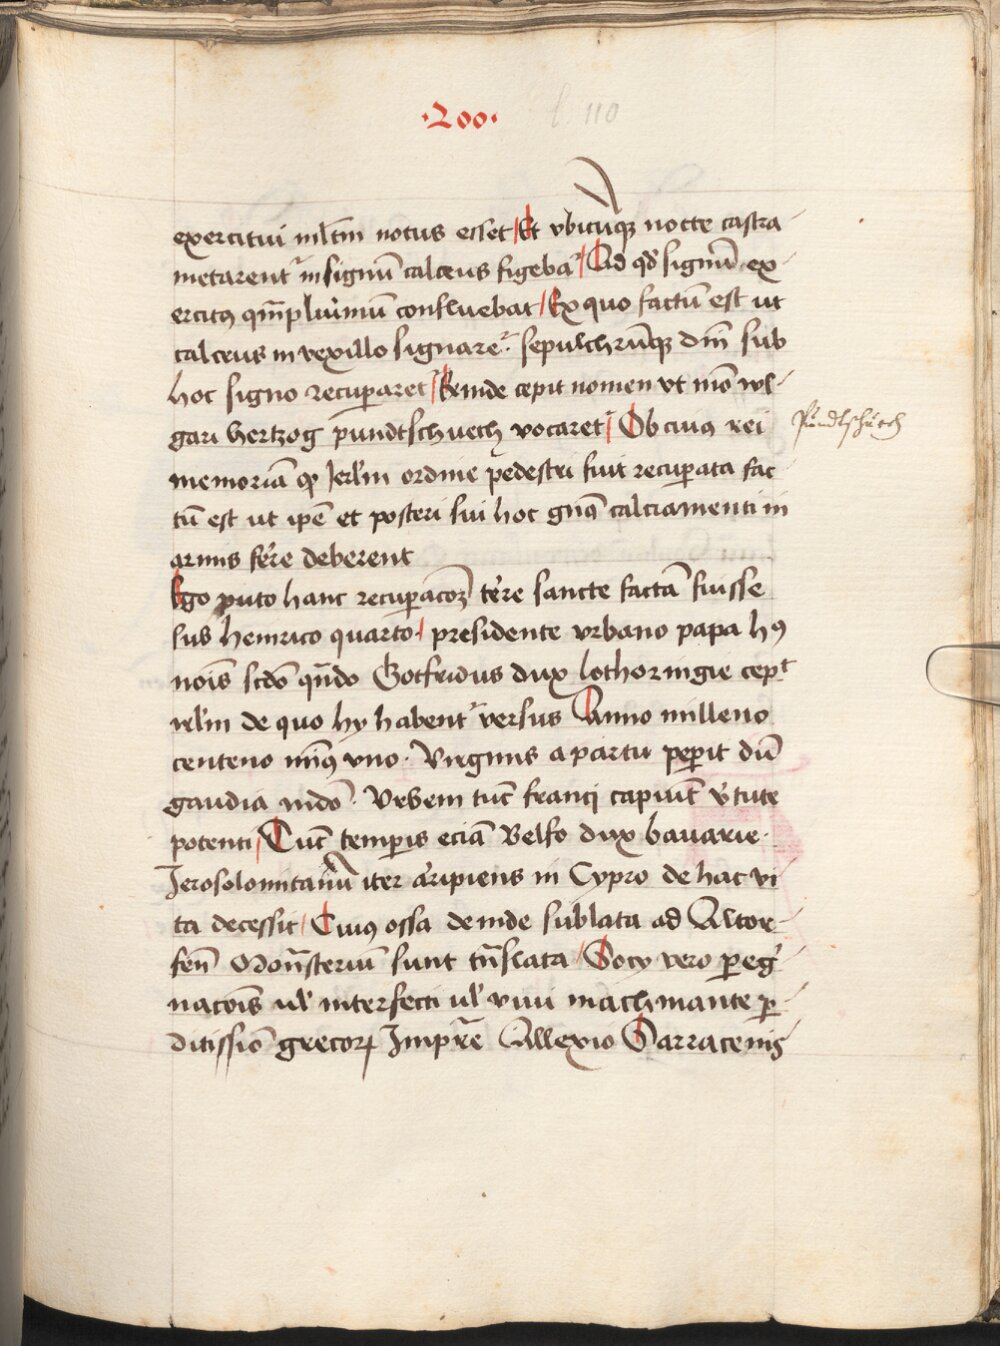 ·200· f. 110
exercitui mltm̄ notus esset Et vbicūqȝ nocte castra
metarentr̄ insignū calceus figebar̄ Ad qd̄ signū ex
ercitꝰ qm̄plurimū confluebat Ex quo factū est ut
calceus in vexillo signaretr̄. sepulchrūqȝ dn̄i sub
hoc signo recuperaretr̄ Exinde cepit nomen vt mō wl
gari hertzog pundtschuech vocaretr̄ Ob cuiꝰ rei
Pundtschuech
memoriā qꝫ Jerlm̄ ordine pedestri fuit recuperata fac
tū est ut ipē et posteri sui hoc signa calciamenti in
armis fērre deberent
Ego puto hanc recuperacōȝ tērre sancte factā fuisse
sub heinrico quarto presidente vrbano papa hꝰ
nōis scdō qn̄do Gotfridus dux lothoringie cepit
irlm̄ de quo hy habentr̄ versus Anno milleno
centeno minꝰ vno · Virginis a partu peperit dū
gaudia mdō · Vrbem tūc franci capiūt v̄tute
potenti Tūc temp̄is eciā Belfo dux bauarie
Jerosolomitanū iter arripiens in Cypro de hac vi
ta decessit Cuiꝰ ossa deinde sublata ad Altor
fen̄ Monasteriū sunt tn̄slata Socy vero pereg
nacōis ul̄ interfecti ul̄ viui machinante per
ditissiō grecorꝝ Impr̄e Allexio Sarracenis